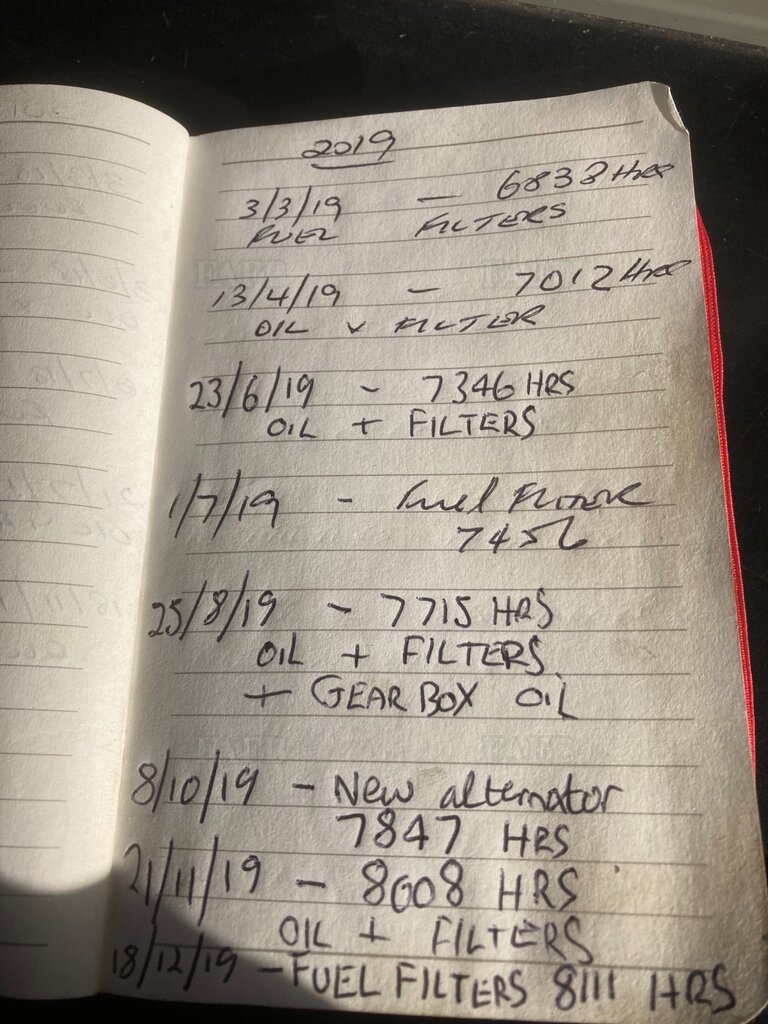 2019
3/3/19 - 6838 HRS
FUEL FILTERS
13/4/19 - 7012 HRS
OIL + FILTER
23/6/19 - 7346 HRS
OIL + FILTERS
1/7/19 - Fuel FILTER
7456
25/8/19 - 7715 HRS
OIL + FILTERS
+ GEARBOX OIL
8/10/19 - New alternator
7847 HRS
21/11/19 - 8008 HRS
OIL + FILTERS
18/12/19 - FUEL FILTERS 8111 HRS